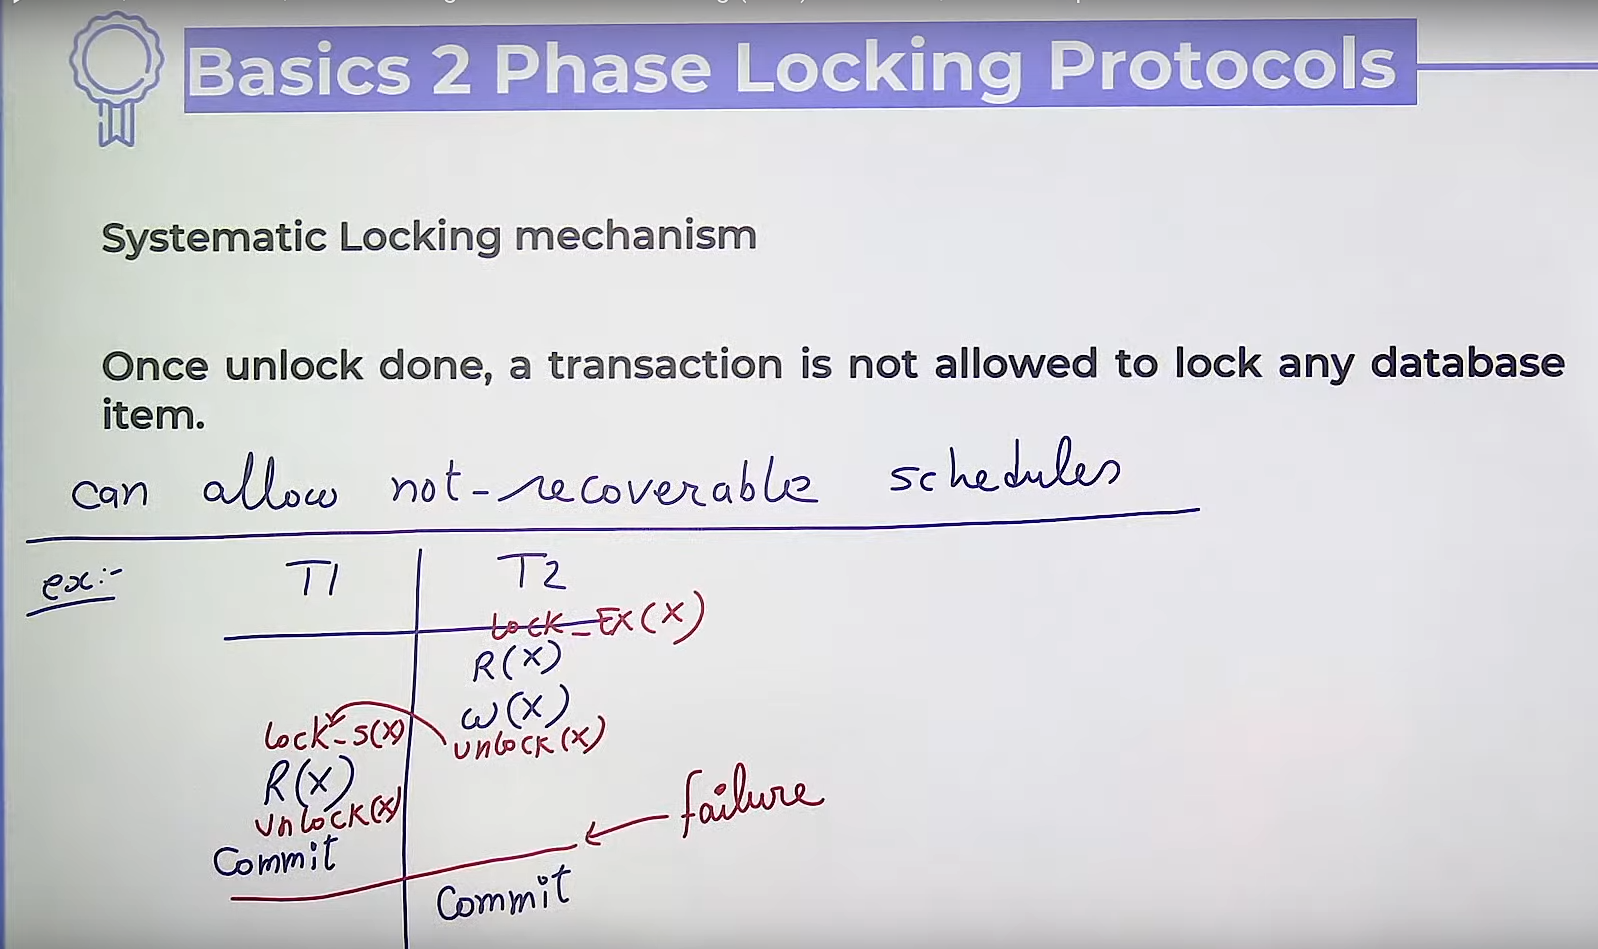 Basics 2 Phase Locking Protocols
Systematic Locking mechanism
Once unlock done, a transaction is not allowed to lock any database
item.
can allow not-recoverable schedules
ex:- T1 T2
Lock_EX(X)
R(X)
W(X)
Lock-S(X) Unlock(X)
R(X)
Unlock(X) failure
Commit
Commit